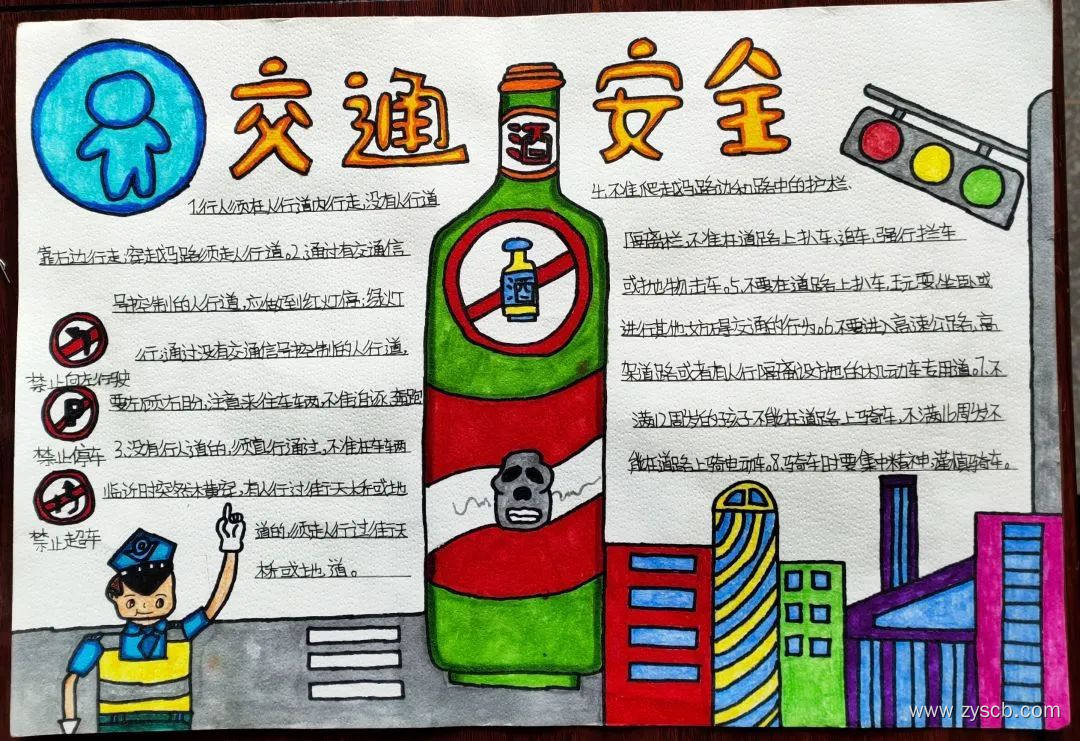 交通安全
酒
酒
1.行人须在人行道内行走,没有人行道
靠右边行走;穿越马路须走人行道。2.通过有交通信
号控制的人行道,应做到红灯停,绿灯
行;通过没有交通信号控制的人行道,
要左顾右盼,注意来往车辆,不准追逐,奔跑
3.没有行人道的,须直行通过,不准在车辆
临近时突然横穿,有人行过街天桥或地
道的,须走人行过街天
桥或地道。
禁止向左行驶
禁止停车
禁止超车
4.不准爬越马路边和路中的护栏、
隔离栏,不准在道路上扒车,追车,强行拦车
或抛物击车。5.不要在道路上扒车,玩耍,坐卧或
进行其他妨碍交通的行为。6.不要进入高速公路,高
架道路或者有人行隔离设施的机动车专用道。7.不
满12周岁的孩子不能在道路上骑车,不满16周岁不
能在道路上骑电动车。8.骑车时要集中精神,谨慎骑车。
www.zyscb.com